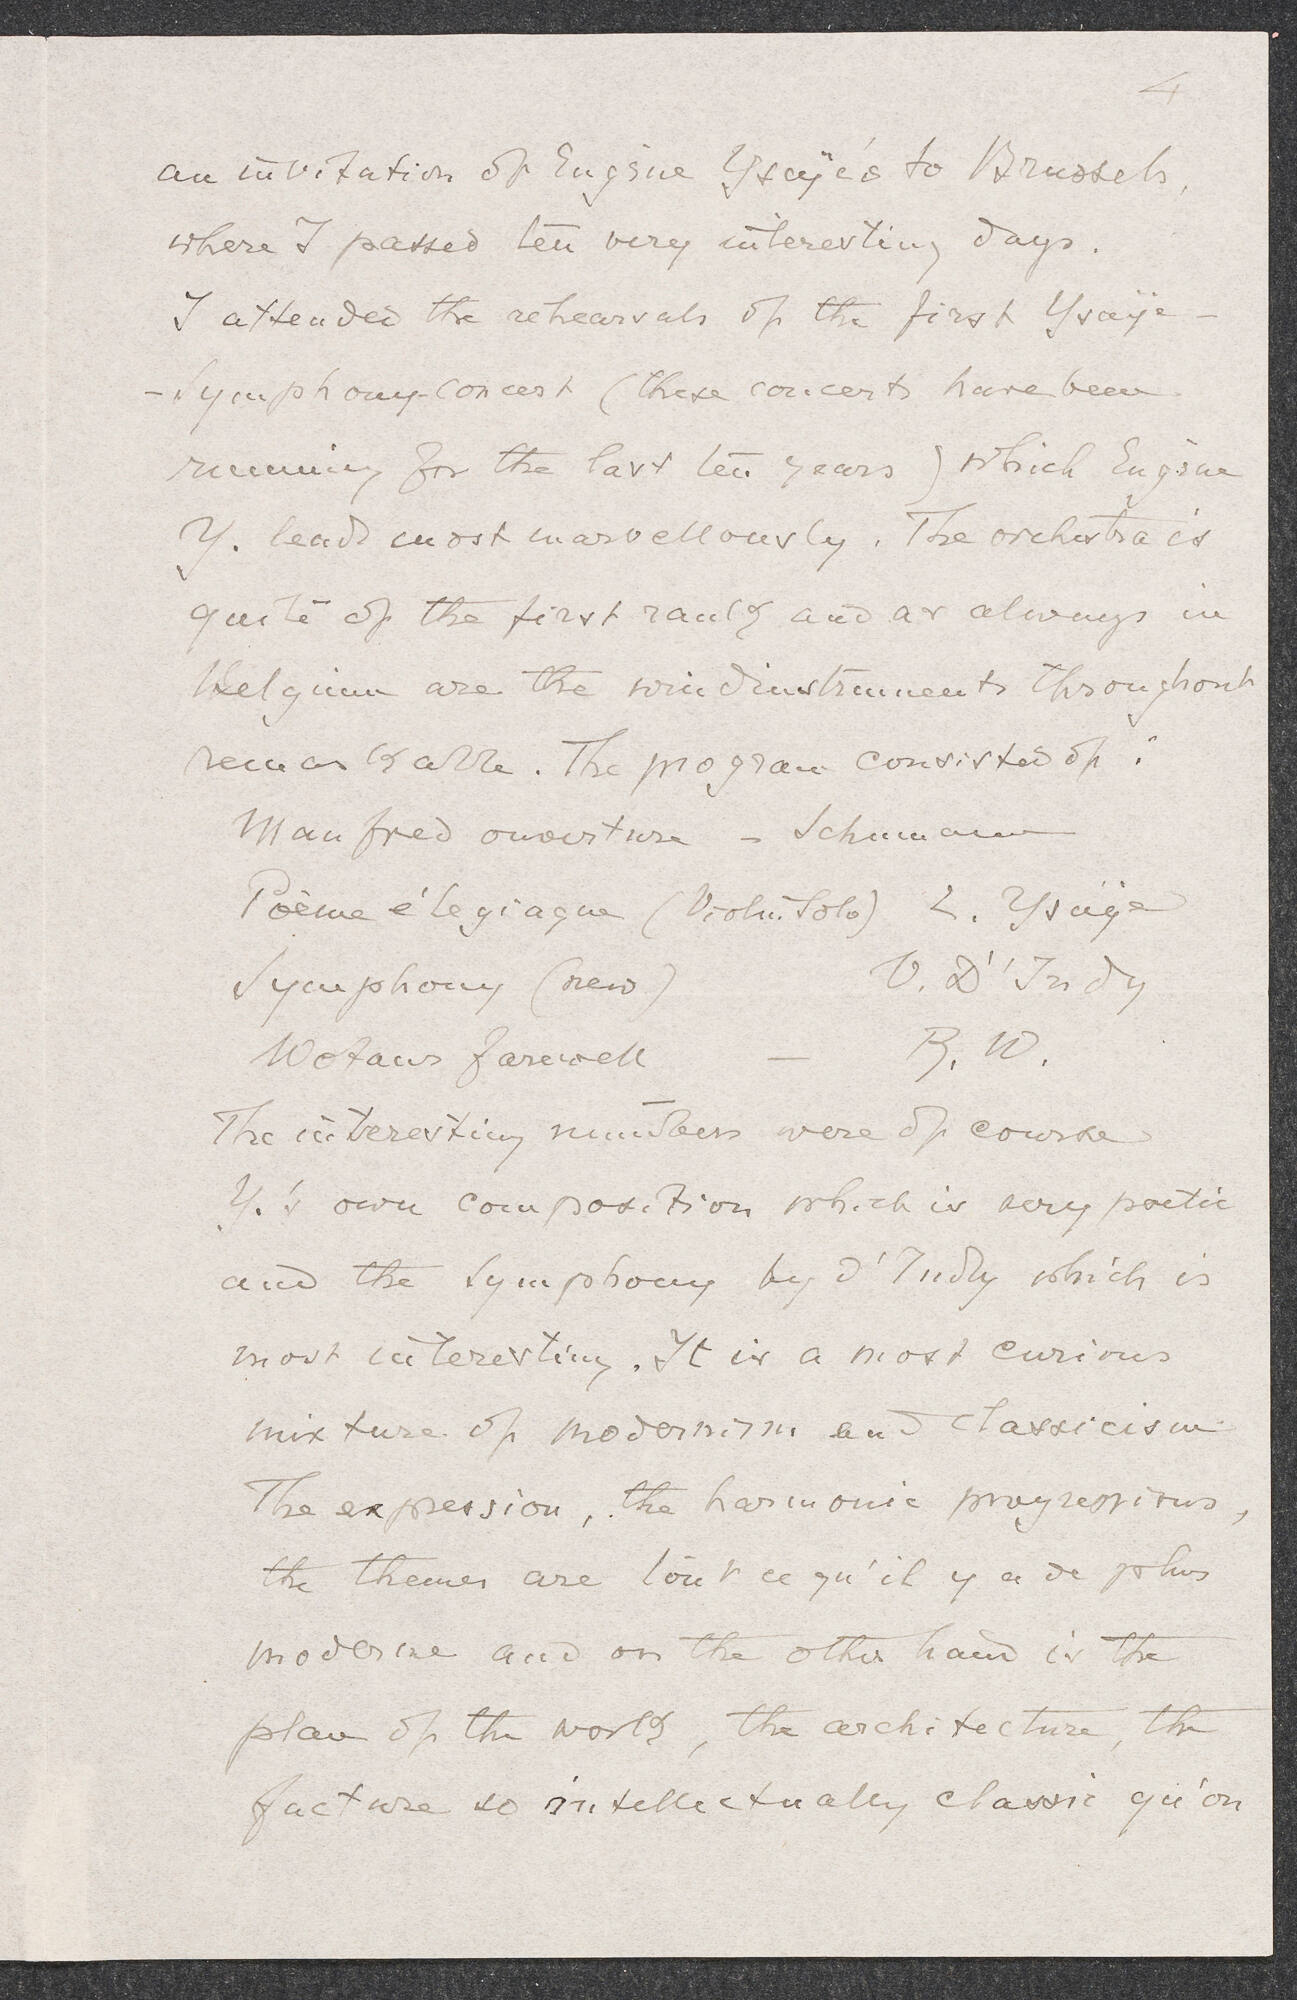 4
an invitation of Eugène Ysaÿe's to Brussels,
where I passed ten very interesting days.
I attended the rehearsals of the first Ysaÿe -
- Symphony-Concert (these concerts have been
running for the last ten years) which Eugène
Y. leads most marvellously. The orchestra is
quite of the first rank and as always in
Belgium are the windinstruments throughout
remarkable. The program consisted of:
Manfred ouverture - Schumann
Poème élegiaque (Violin. Solo) E. Ysaÿe
Symphony (new) V. D'Indy
Wotans farewell - R. W.
The interesting numbers were of course
Y.'s own composition which is very poetic
and the Symphony by d'Indy which is
most interesting. It is a most curious
mixture of modernism and classicism
The expression, the harmonic progressions,
the themes are tout ce qu'il y a de plus
moderne and on the other hand is the
plan of the work, the architecture, the
facture so intellectually classic qu'on